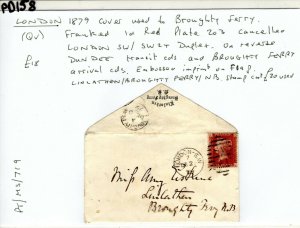 PO158
LONDON 1879 cover used to Broughty Ferry.
(QV) Franked 1d Red Plate 203 cancelled
LONDON SW/SW27 Duplex. On reverse
£18 DUNDEE transit cds and BROUGHTY FERRY
arrival cds, Embossed imprint on flap
LINLATHEN/BROUGHTY FERRY/NB. Stamp cat £20 used
Linlathen
Broughty Ferry
N.B.
Miss Amy Erskine
Linlathen
Broughty Ferry N.B